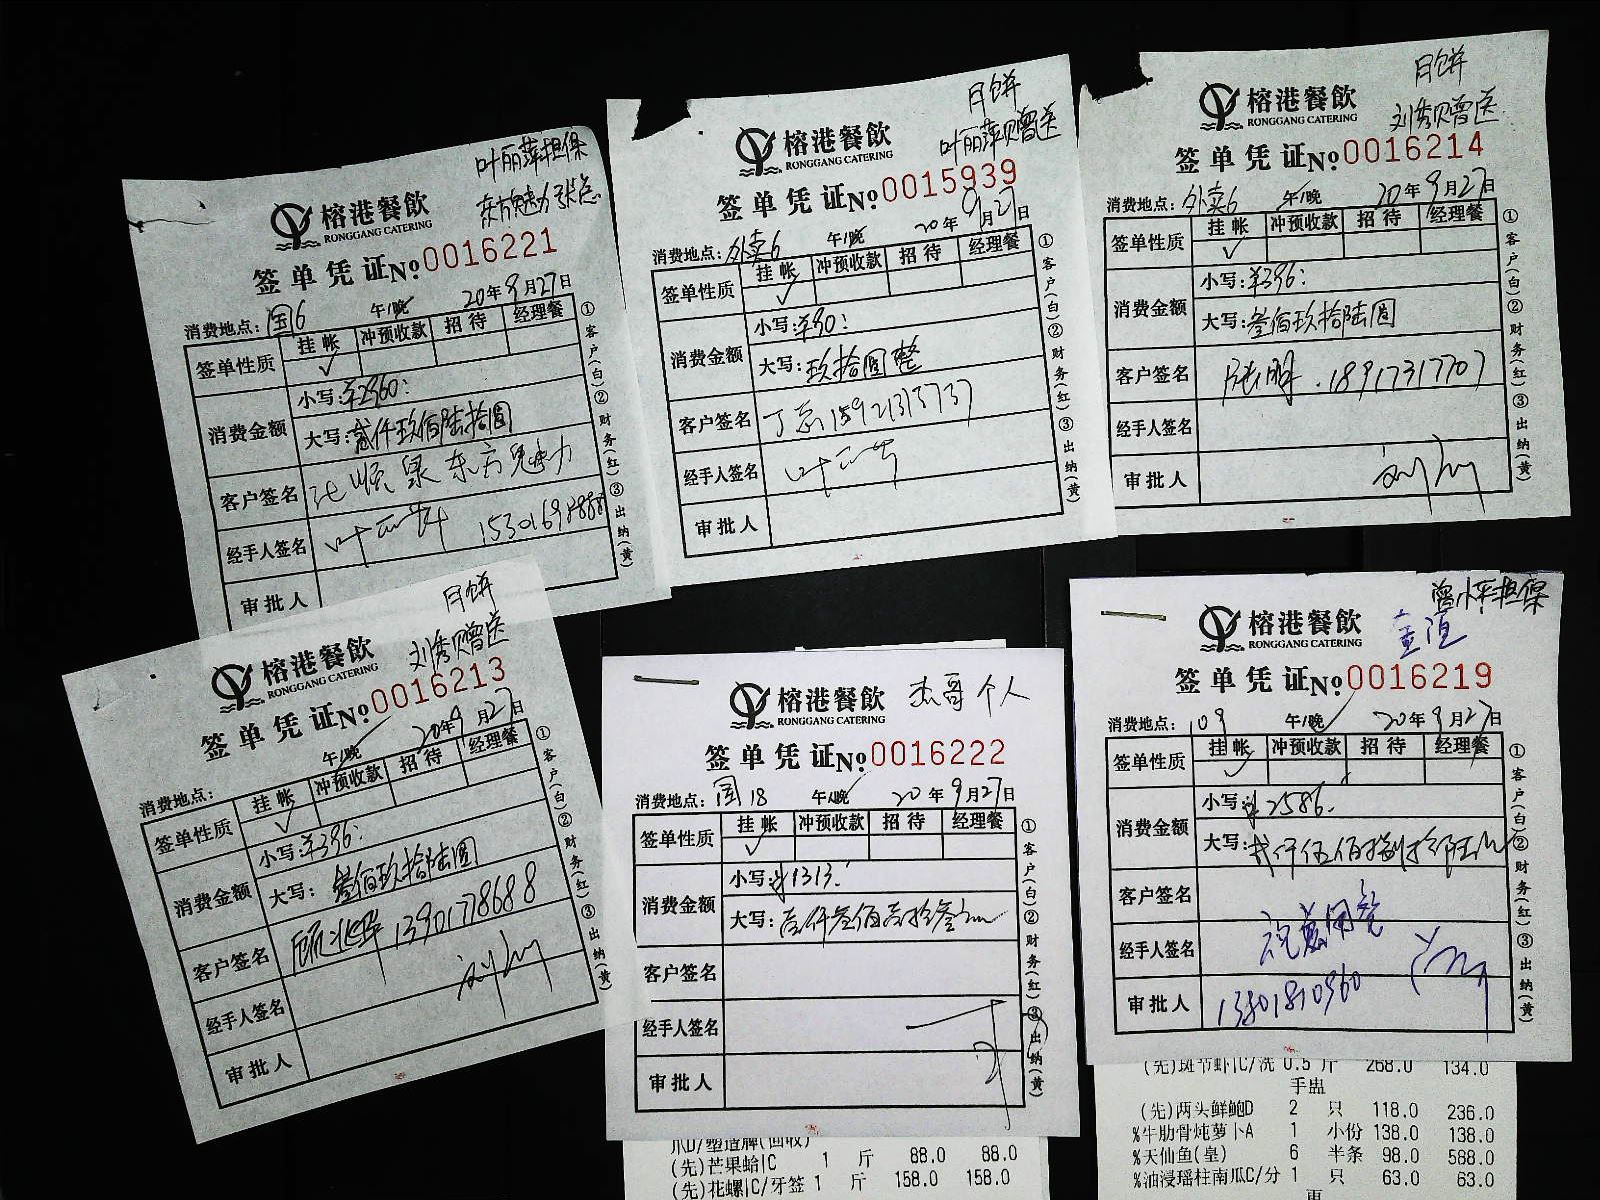 叶丽萍担保
东方魅力张总
榕港餐飲
RONGGANG CATERING
签单凭证 No 0016221
消费地点: 国6 午/晚 20年9月27日
签单性质 挂帐 冲预收款 招待 经理餐
✓
消费金额 小写: ¥2960:
大写: 贰仟玖佰陆拾圆
客户签名 东方魅力
经手人签名
审批人
①客户(白)②财务(红)③出纳(黄)
月饼
叶丽萍赠送
榕港餐飲
RONGGANG CATERING
签单凭证 No 0015939
消费地点: 外卖6 午/晚 20年9月27日
签单性质 挂帐 冲预收款 招待 经理餐
✓
消费金额 小写: ¥90:
大写: 玖拾圆整
客户签名 丁总
经手人签名
审批人
①客户(白)②财务(红)③出纳(黄)
月饼
刘秀贝赠送
榕港餐飲
RONGGANG CATERING
签单凭证 No 0016214
消费地点: 外卖6 午/晚 20年9月27日
签单性质 挂帐 冲预收款 招待 经理餐
✓
消费金额 小写: ¥396:
大写: 叁佰玖拾陆圆
客户签名 18917317707
经手人签名
审批人
①客户(白)②财务(红)③出纳(黄)
月饼
刘秀贝赠送
榕港餐飲
RONGGANG CATERING
签单凭证 No 0016213
消费地点: 午/晚 20年9月27日
签单性质 挂帐 冲预收款 招待 经理餐
✓
消费金额 小写: ¥396:
大写: 叁佰玖拾陆圆
客户签名 顾兆华 13901778688
经手人签名
审批人
①客户(白)②财务(红)③出纳(黄)
榕港餐飲 杰哥个人
RONGGANG CATERING
签单凭证 No 0016222
消费地点: 国18 午/晚 20年9月27日
签单性质 挂帐 冲预收款 招待 经理餐
✓
消费金额 小写: ¥1313.
大写: 壹仟叁佰壹拾叁元
客户签名
经手人签名
审批人
①客户(白)②财务(红)③出纳(黄)
(先)芒果蛤|C 1 斤 88.0 88.0
(先)花螺|C/牙签 1 斤 158.0 158.0
曾小平担保
榕港餐飲
RONGGANG CATERING
签单凭证 No 0016219
消费地点: 109 午/晚 20年9月27日
签单性质 挂帐 冲预收款 招待 经理餐
✓
消费金额 小写: ¥2586.
大写: 贰仟伍佰捌拾陆元
客户签名
经手人签名
审批人
①客户(白)②财务(红)③出纳(黄)
(先)斑节虾|C/洗 0.5 斤 268.0 134.0
手盅
(先)两头鲜鲍D 2 只 118.0 236.0
%牛肋骨炖萝卜A 1 小份 138.0 138.0
%天仙鱼(皇) 6 半条 98.0 588.0
%油浸瑶柱南瓜C/分 1 只 63.0 63.0